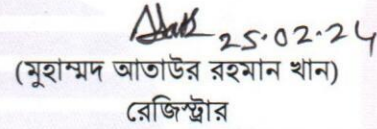 25.02.24
(মুহাম্মদ আতাউর রহমান খান)
রেজিস্ট্রার